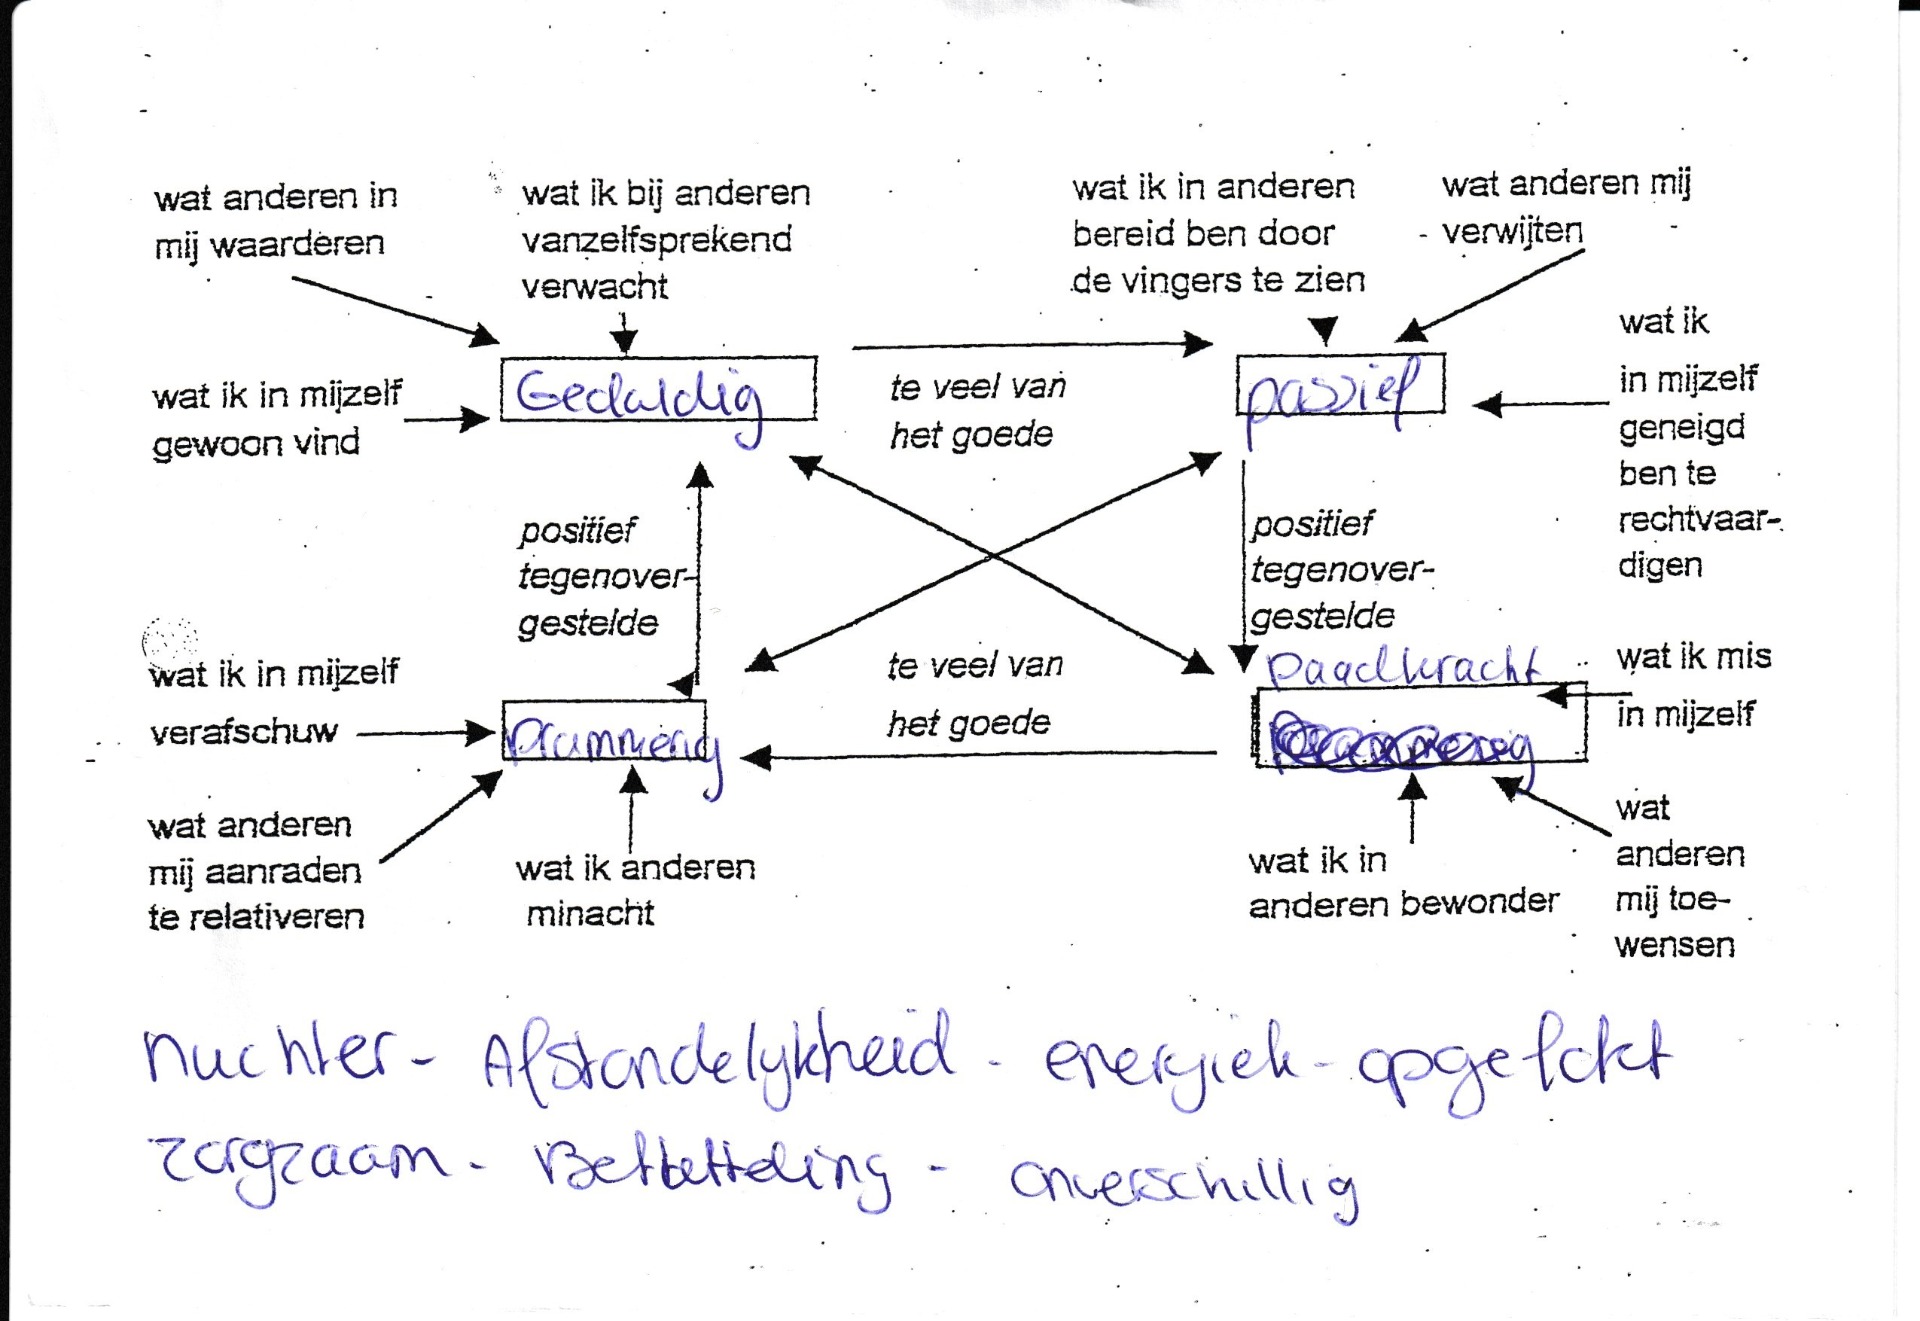 wat anderen in
mij waarderen
wat ik bij anderen
vanzelfsprekend
verwacht
wat ik in anderen
bereid ben door
de vingers te zien
wat anderen mij
verwijten
wat ik in mijzelf
gewoon vind
Geduldig
te veel van
het goede
passief
wat ik
in mijzelf
geneigd
ben te
rechtvaar-
digen
positief
tegenover-
gestelde
positief
tegenover-
gestelde
wat ik in mijzelf
verafschuw
Drammerig
te veel van
het goede
Daadkracht
wat ik mis
in mijzelf
wat anderen
mij aanraden
te relativeren
wat ik anderen
minacht
wat ik in
anderen bewonder
wat
anderen
mij toe-
wensen
nuchter - Afstandelijkheid - energiek - opgefokt
zorgzaam - Betutteling - onverschillig